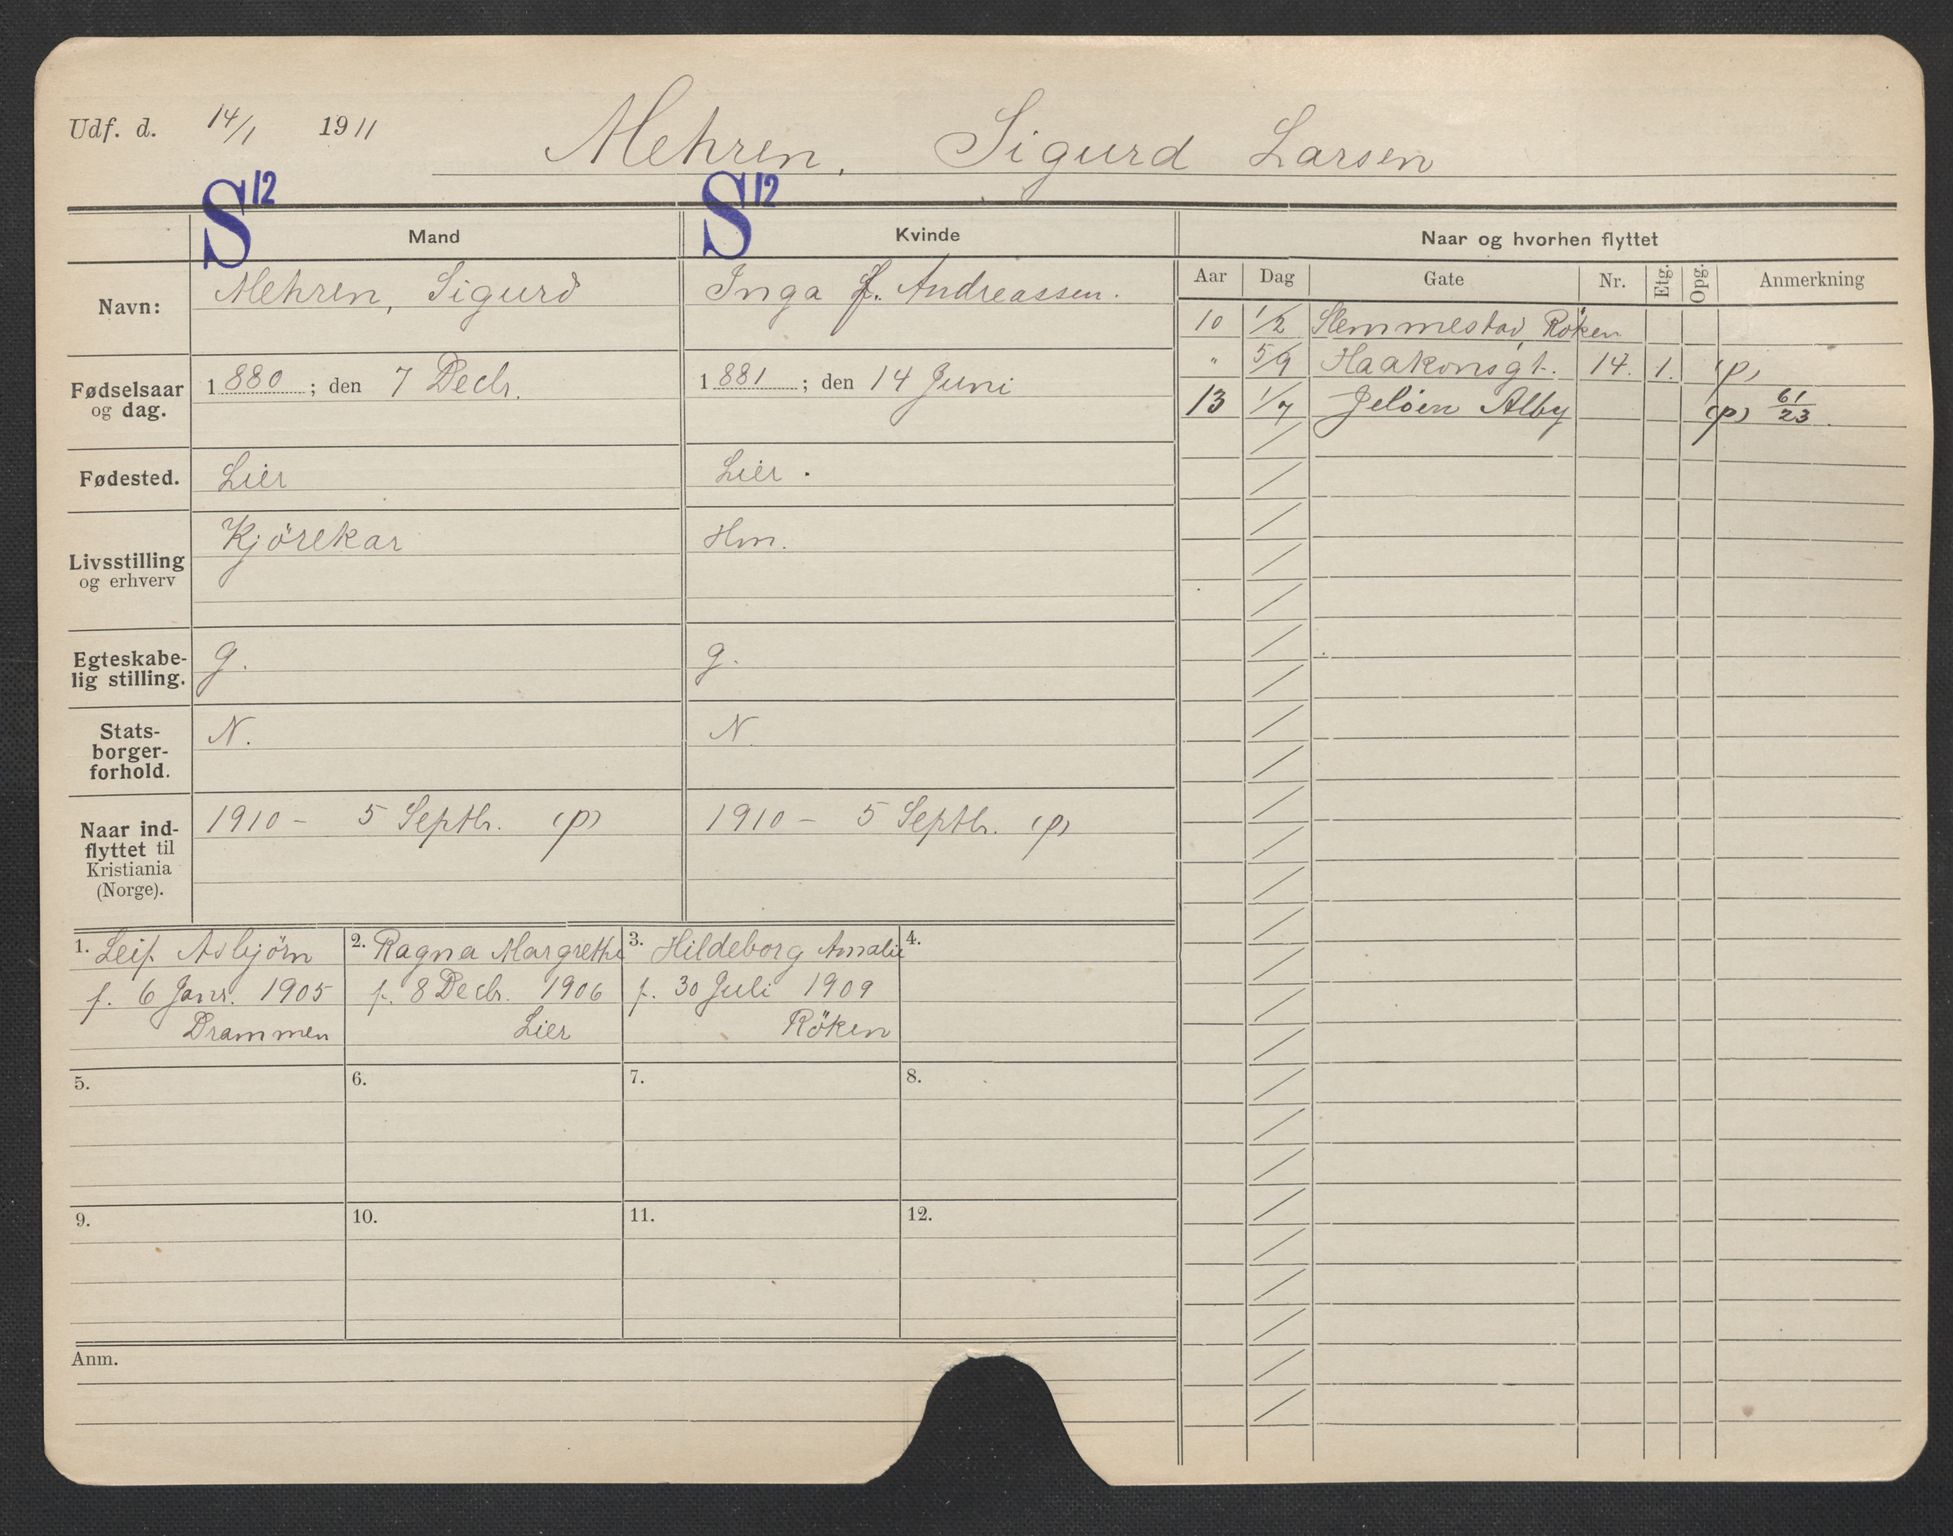 Udf. d. 14/1 1911
Mehren, Sigurd Larsen
S12 S12
Mand Kvinde Naar og hvorhen flyttet
Aar Dag Gate Nr. Etg. Opg. Anmerkning
Navn: Mehren, Sigurd Inga f. Andreassen.
Fødselsaar og dag. 1880; den 7 Decbr. 1881; den 14 Juni
Fødested. Lier Lier.
Livsstilling og erhverv Kjørekar Hm.
Egteskabe-
lig stilling. g. g.
Stats-
borger-
forhold. N. N
Naar ind-
flyttet til
Kristiania
(Norge). 1910 - 5 Septbr. (p) 1910 - 5 Septbr. (p)
10 1/2 Slemmestad, Røken
" 5/9 Haakonsgt. 14. 1. (p)
13 1/7 Jeløen Alby (p) 61/23.
1. Leif Asbjørn
f. 6 Janr. 1905
Drammen
2. Ragna Margrethe
f. 8 Decbr. 1906
Lier
3. Hildeborg Amalie
f. 30 Juli 1909
Røken
4.
5. 6. 7. 8.
9. 10. 11. 12.
Anm.